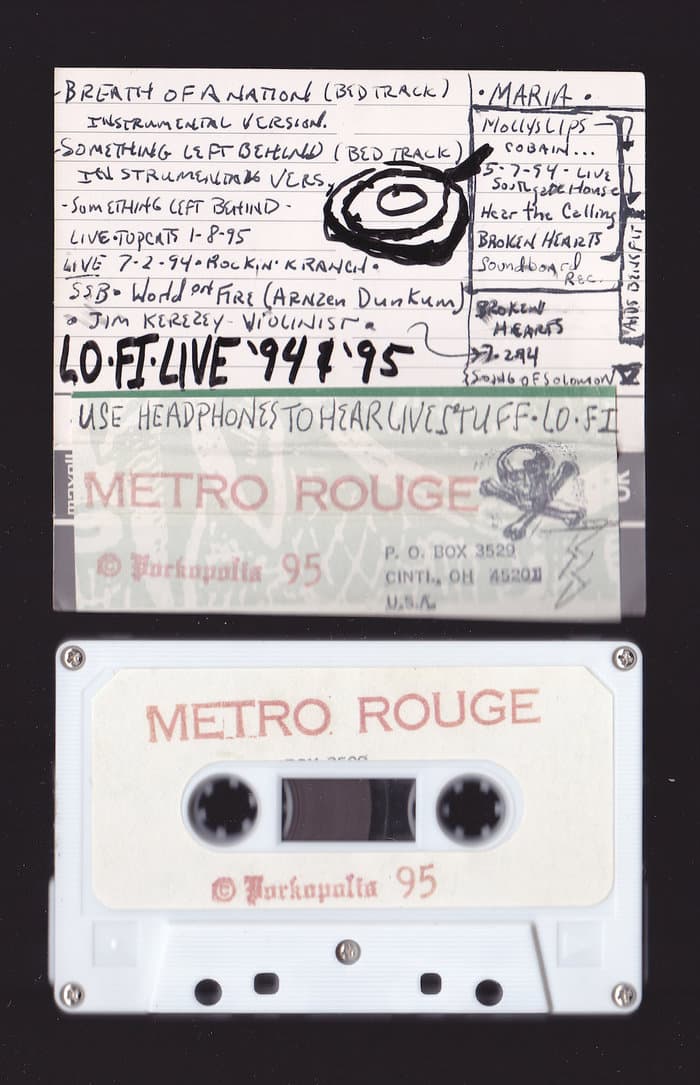 -BREATH OF A NATION (BED TRACK)
INSTRUMENTAL VERSION.
-SOMETHING LEFT BEHIND (BED TRACK)
INSTRUMENTAL VERS.
-SOMETHING LEFT BEHIND-
LIVE•TOPCATS 1-8-95
LIVE 7-2-94•ROCKIN•K RANCH•
SSB• World on FIRE (ARNZEN DUNKUM)
• JIM KEREZEY-VIOLINIST•
LO•FI•LIVE '94 & '95
•MARIA•
MOLLYSLIPS
COBAIN...
5-7-94-LIVE
Southgate House
Hear the Calling
BROKEN HEARTS
Soundboard
REC.
BROKEN
HEARTS
7-2-94
SONG OF SOLOMON
USE HEADPHONES TO HEAR LIVE STUFF•LO•FI
maxell
METRO ROUGE
© Porkopolis 95
P. O. BOX 3529
CINTI., OH 45201
U.S.A.
METRO ROUGE
BOX 3529
© Porkopolis 95